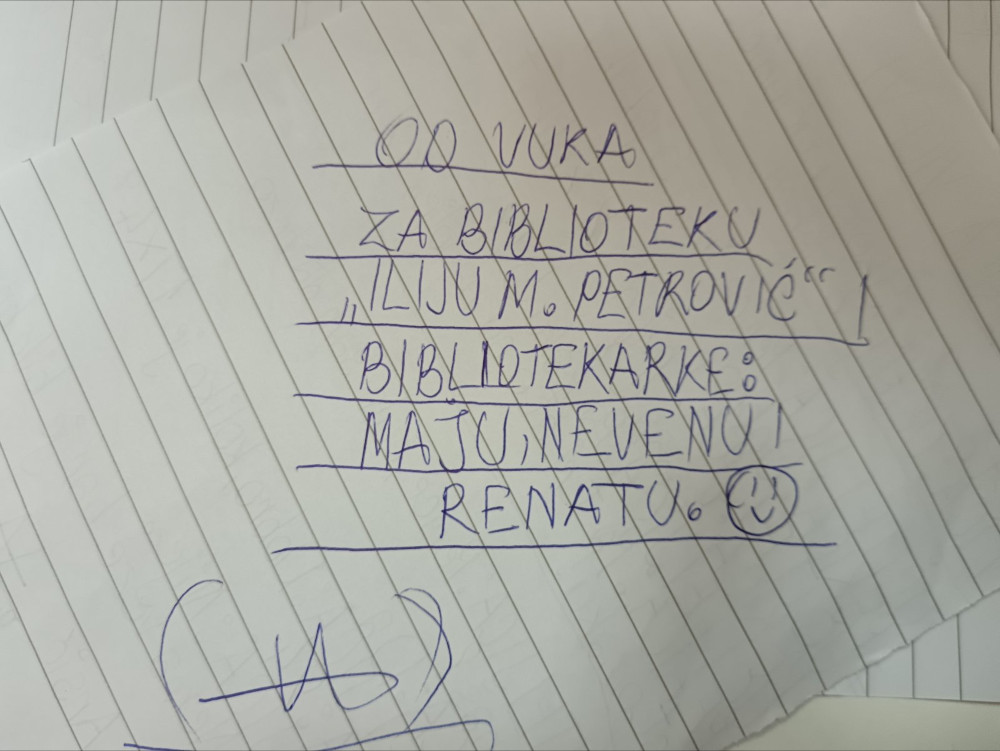 OD VUKA
ZA BIBLIOTEKU
„ILIJU M. PETROVIĆ“ I
BIBLIOTEKARKE:
MAJU, NEVENU I
RENATU.